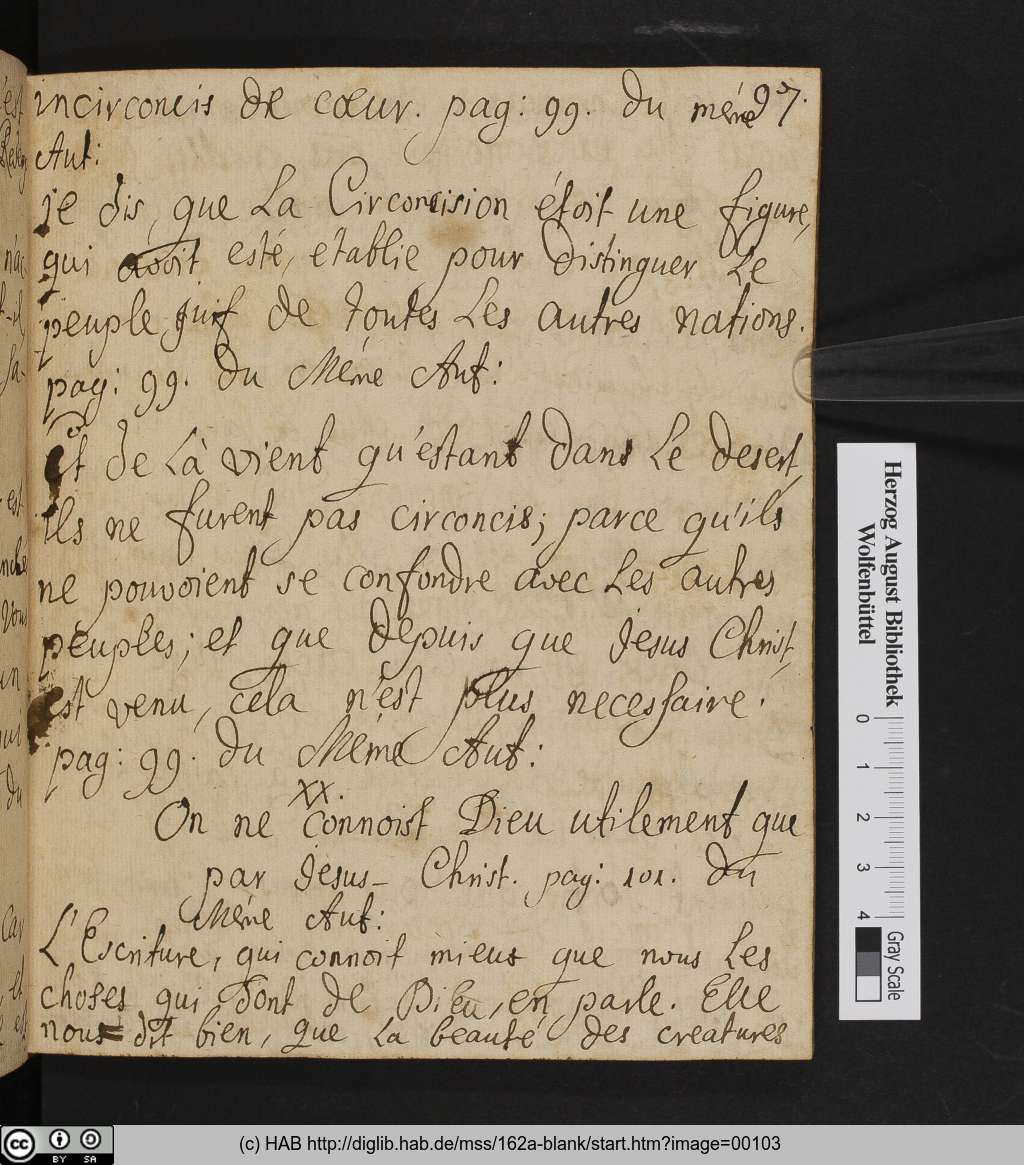 97.
incirconcis de cœur. pag: 99. du méme
Aut:
je dis, que La Circoncision étoit une figure,
qui avoit esté, etablie pour distinguer Le
peuple juif de toutes Les autres nations.
pag: 99. du Méme Aut:
Et de Là vient qu'éstant dans Le desert,
ils ne furent pas circoncis; parce qu'ils
ne pouvoient se confondre avec Les autres
peuples; et que depuis que Jesus Christ,
est venu, cela n'est plus necessaire.
pag: 99. du Méme Aut:
XX.
On ne connoist Dieu utilement que
par Jesus- Christ. pag: 101. du
Méme Aut:
L'Escriture, qui connoit mieux que nous Les
choses qui sont de Dieu, en parle. Elle
nous dit bien, que La beauté des creatures
Herzog August Bibliothek
Wolfenbüttel
0 1 2 3 4
Gray Scale
cc BY SA
(c) HAB http://diglib.hab.de/mss/162a-blank/start.htm?image=00103